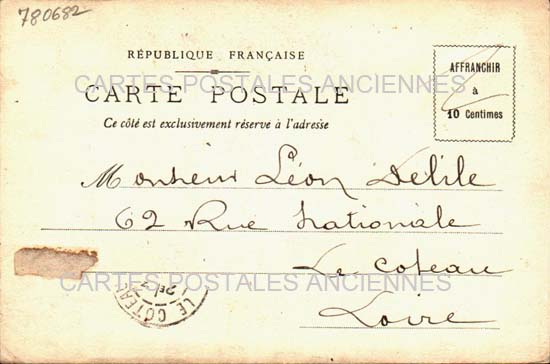 780682
RÉPUBLIQUE FRANÇAISE
CARTES POSTALES ANCIENNES
CARTE POSTALE
Ce côté est exclusivement réservé à l'adresse
AFFRANCHIR
à
10 Centimes
Monsieur Léon Delile
62 Rue Nationale
Le Coteau
Loire
CARTES POSTALES ANCIENNES
LE COTEAU